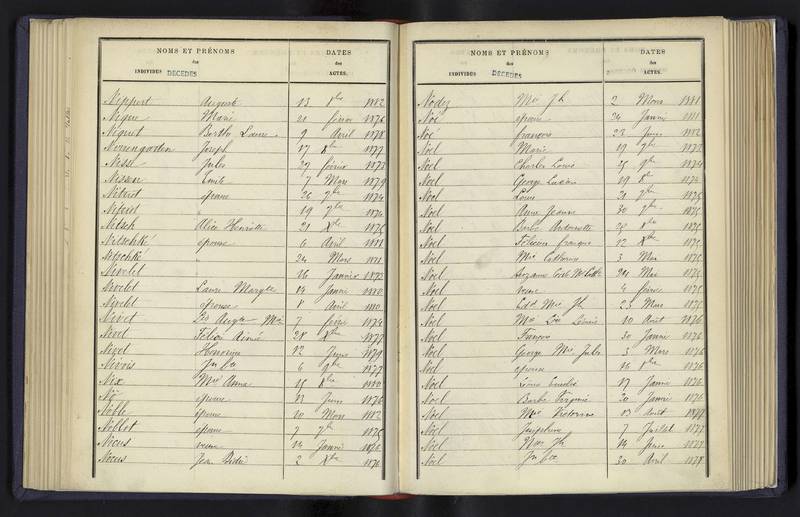 NOMS ET PRÉNOMS
des
INDIVIDUS DÉCÉDÉS
DATES
des
ACTES.
Nippert Auguste 13 8bre 1882
Niquet Marie 21 février 1876
Niquet Berthe Laure 9 Avril 1878
Joseph 17 1877
Nissel Jules 27 février 1873
Nissen Emile 7 Mars 1879
Nitrot épouse 26 7bre 1874
19 7bre 1874
Nitsch Alice Henriette 21 Xbre 1875
Nitschké épouse 6 Avril 1881
Nitschké " 24 Mars 1881
Nivelet " 16 Janvier 1873
Nivelet Laure Margte 14 Janvier 1880
Nivelet épouse 8 Avril 1880
Nivet 7 février 1874
Nivet Félicie Aimée 28 Xbre 1877
Nivet Honorine 12 Juin 1879
Nivois Jn Bte 6 1877
Nix Mie Anna 15 1880
épouse 11 Juin 1876
Noble épouse 10 Mars 1882
Noblot épouse 7 7bre 1875
Nocus veuve 14 Janvier 1876
Nocus Jean Didier 2 Xbre 1876
NOMS ET PRÉNOMS
des
INDIVIDUS DÉCÉDÉS
DATES
des
ACTES.
Nodez Mie Jh 2 Mars 1881
Noé épouse 24 Janvier 1881
Noé françois 22 Juin 1882
Noel Marie 19 9bre 1873
Noel Charles Louis 25 9bre 1874
Noel George Lucien 19 1874
Noel Louise 21 7bre 1875
Noel Anne Jeanne 30 7bre 1875
Noel Barbe Antoinette 28 1875
Noel Félicien françois 12 Xbre 1875
Noel Mie Catherine 3 Mai 1875
Noel Suzanne 24 Mai 1875
Noel veuve 4 février 1875
Noel Mie Jh 23 Mars 1875
Noel Mie 10 Août 1876
Noel François 30 Janvier 1876
Noel George Mie Jules 3 Mars 1876
Noel épouse 16 1876
Noel Louis Emile 17 Janvier 1876
Noel Barbe Virginie 20 Janvier 1876
Noel Mie Victorine 13 Août 1877
Noel Joséphine 7 Juillet 1877
Noel Jh 14 Juin 1877
Noel Jn Bte 30 Avril 1878